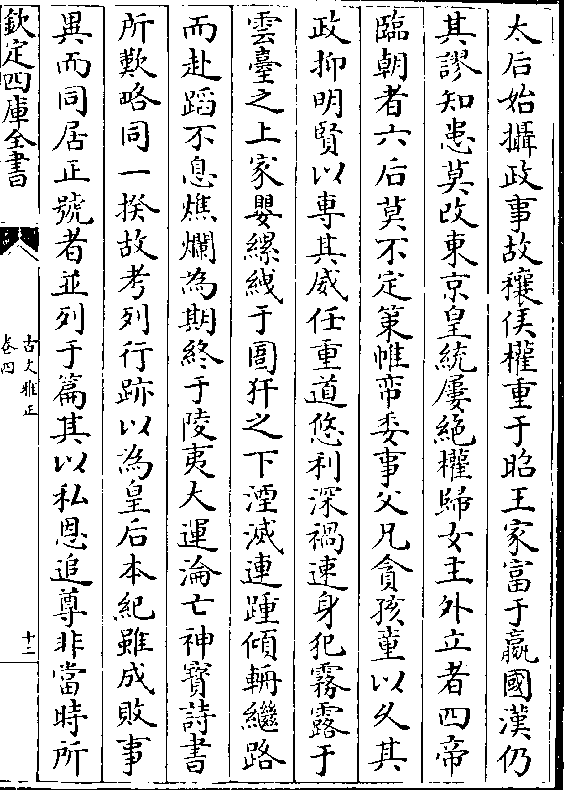 太后始攝政事故穰侯權重于昭王家富于嬴國漢仍
其謬知患莫改東京皇統屢絶權歸女主外立者四帝
臨朝者六后莫不定策帷帟委事父兄貪孩童以久其
政抑明賢以專其威任重道悠利深禍速身犯霧露于
雲臺之上家嬰縲絏于圄犴之下湮滅連踵傾輈繼路
而赴蹈不息燋爛為期終于陵夷大運淪亡神寳詩書
所歎略同一揆故考列行跡以為皇后本紀雖成敗事
異而同居正號者並列于篇其以私恩追尊非當時所
欽定四庫全書
古文雅正
卷四
十二